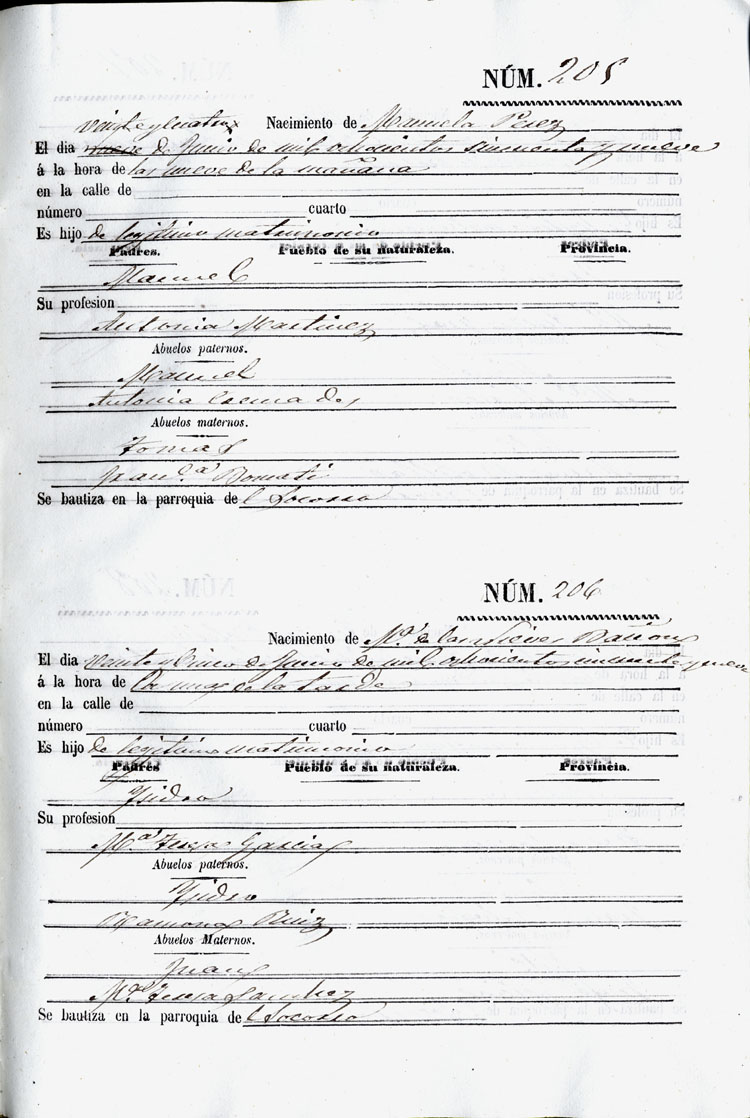 NÚM. 205
Nacimiento de Manuela Perez
veinte y cuatro
El dia nueve de Junio de mil ochocientos cincuenta y nueve
á la hora de las nueve de la mañana
en la calle de
número cuarto
Es hijo de legitimo matrimonio
Padres. Pueblo de su naturaleza. Provincia.
Manuel
Su profesion
Antonia Martinez
Abuelos paternos.
Manuel
Antonia
Abuelos maternos.
Tomas
Franc.ca
Se bautiza en la parroquia del Socorro
NÚM. 206
Nacimiento de M.ª de las Nieves
El dia veinte y cinco de Junio de mil ochocientos cincuenta y nueve
á la hora de la una de la tarde
en la calle de
número cuarto
Es hijo de legitimo matrimonio
Padres Pueblo de su naturaleza. Provincia.
Ysidro
Su profesion
M.ª Teresa Garcia
Abuelos paternos.
Ysidro
Ramona Ruiz
Abuelos Maternos.
Juan
M.ª Teresa Sanchez
Se bautiza en la parroquia del Socorro